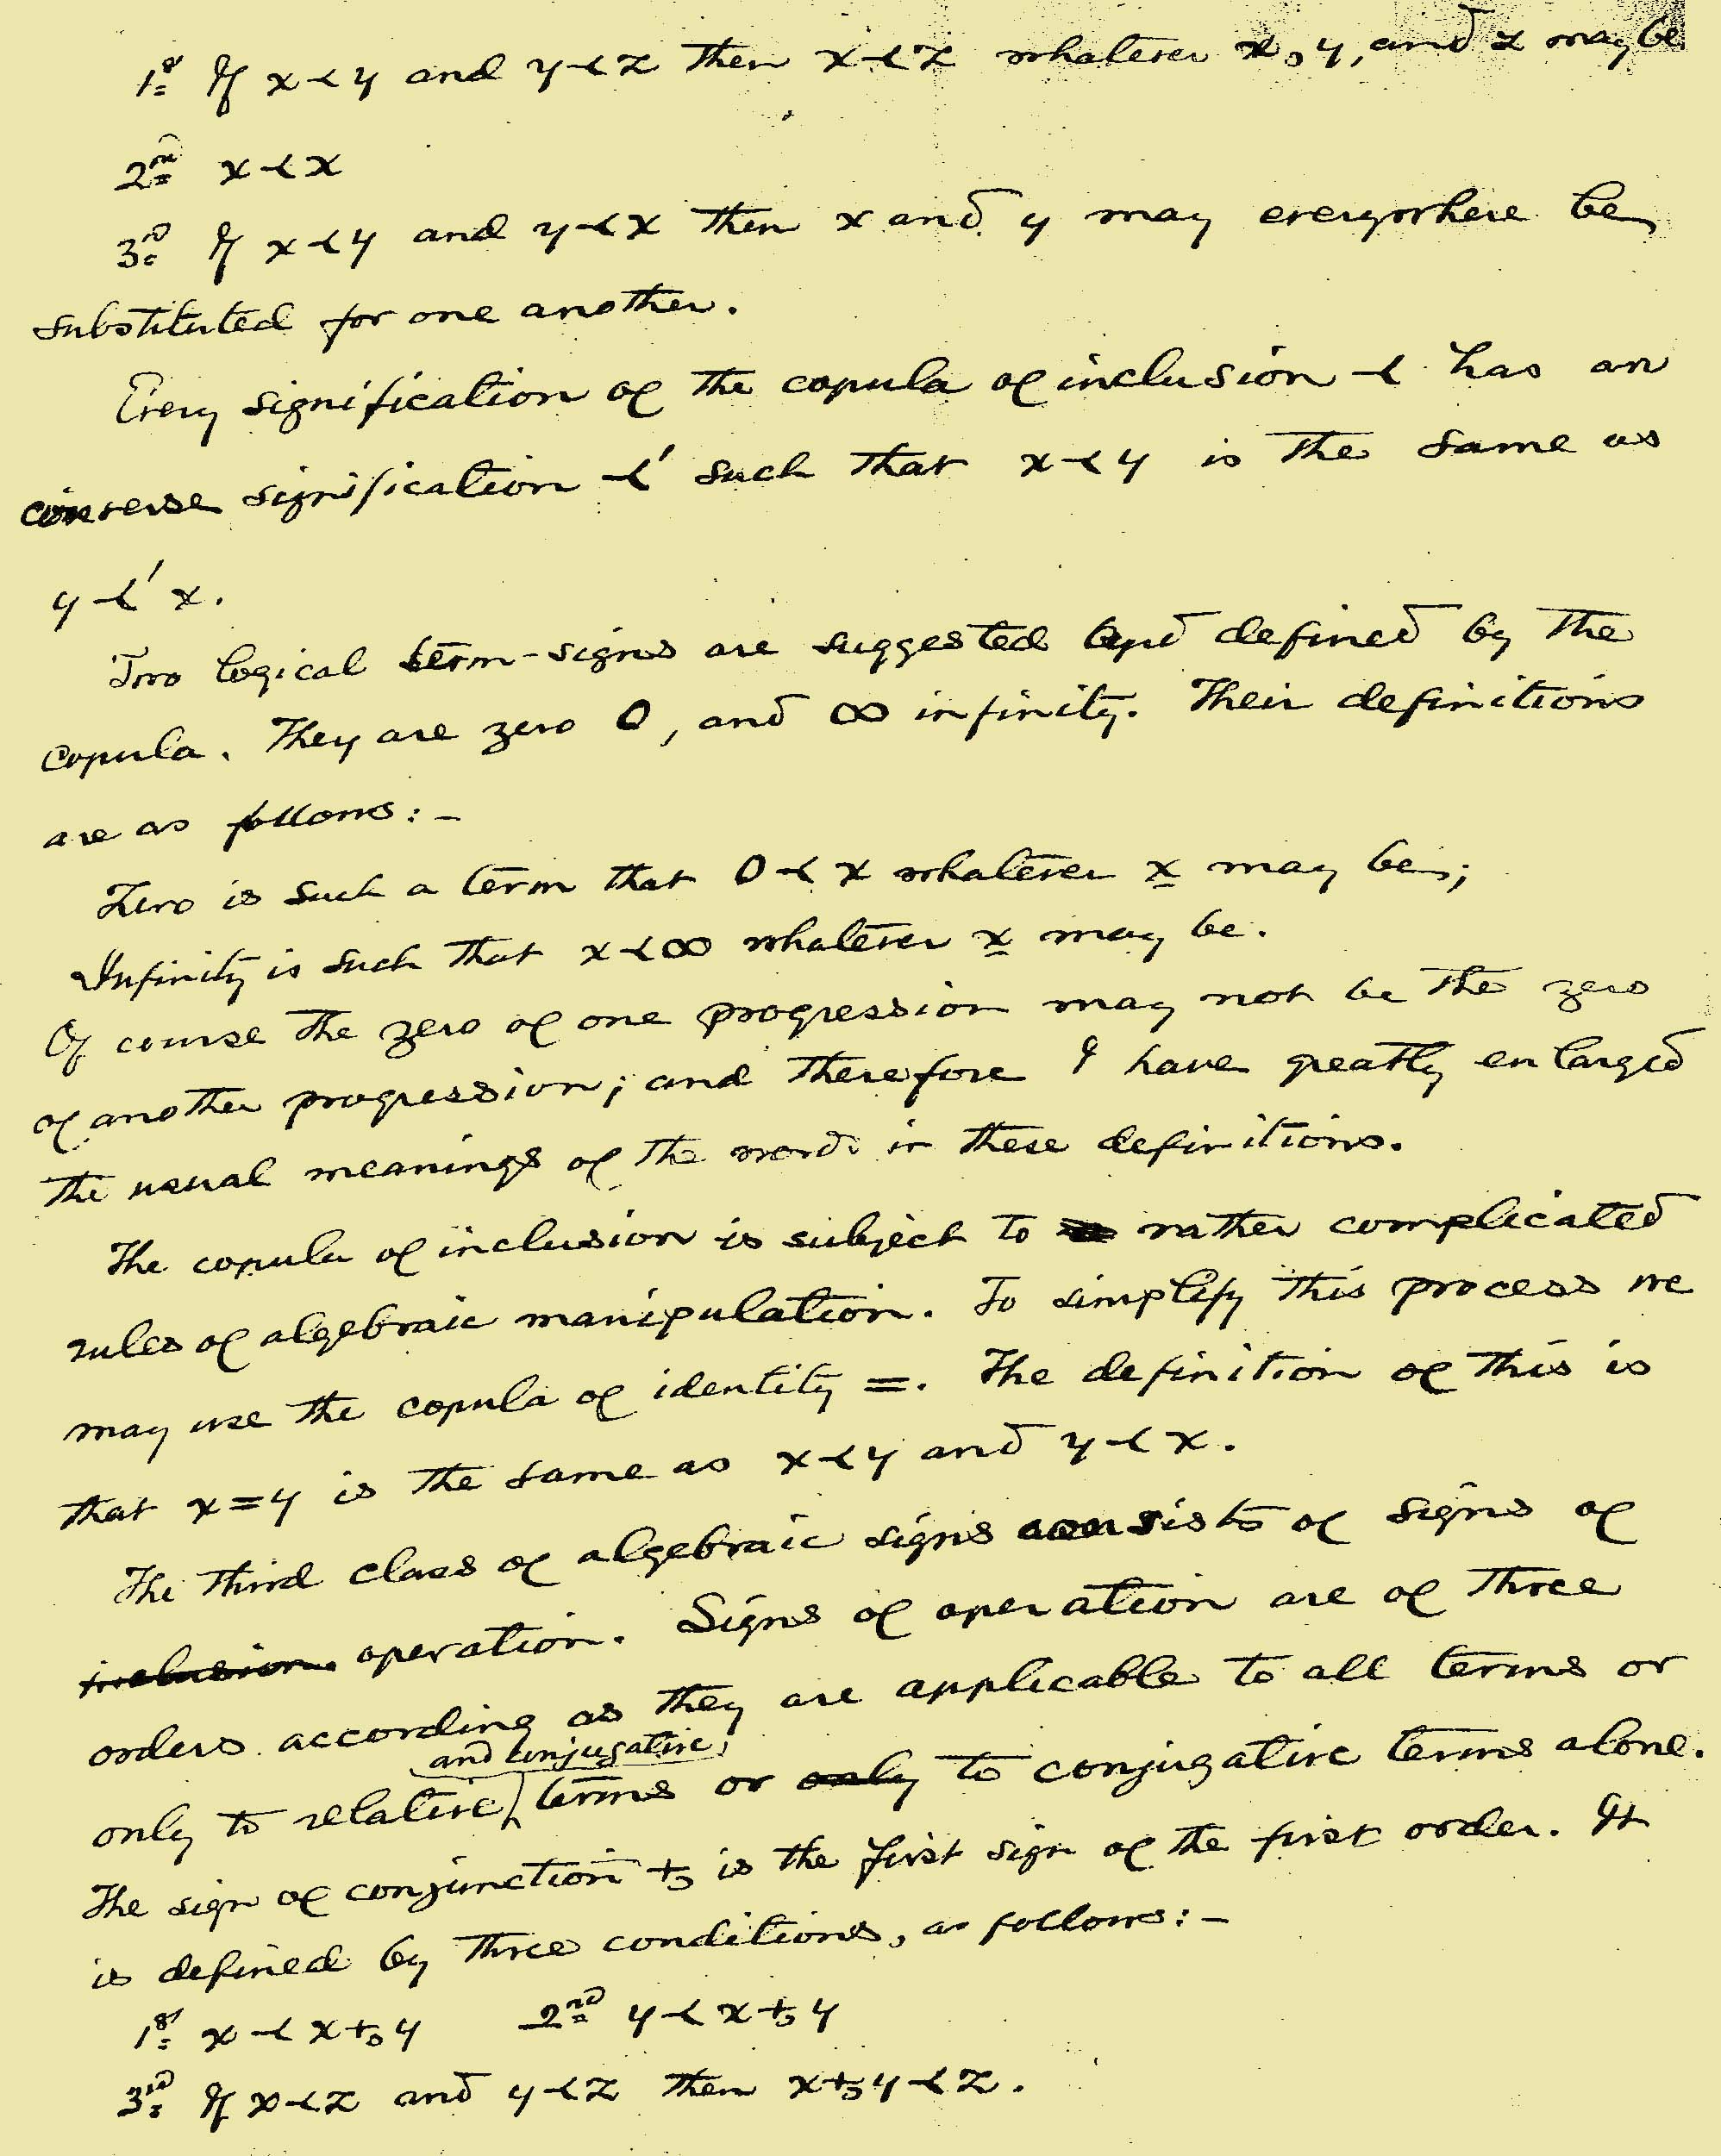 1st If x ⤙ y and y ⤙ z then x ⤙ z whatever x, y, and z may be
2nd x ⤙ x
3rd If x ⤙ y and y ⤙ x then x and y may everywhere be
substituted for one another.
Every signification of the copula of inclusion ⤙ has an
converse signification ⤙′ such that x ⤙ y is the same as
y ⤙′ x.
Two logical term-signs are suggested and defined by the
copula. They are zero 0, and ∞ infinity. Their definitions
are as follows:–
Zero is such a term that 0 ⤙ x whatever x may be;
Infinity is such that x ⤙ ∞ whatever x may be.
Of course the zero of one progression may not be the zero
of another progression; and therefore I have greatly enlarged
the usual meanings of the words in these definitions.
The copula of inclusion is subject to rather complicated
rules of algebraic manipulation. To simplify this process we
may use the copula of identity =. The definition of this is
that x = y is the same as x ⤙ y and y ⤙ x.
The third class of algebraic signs consists of signs of
inclusion operation. Signs of operation are of three
orders according as they are applicable to all terms or
and conjugative
only to relative terms or only to conjugative terms alone.
The sign of conjunction +, is the first sign of the first order. It
is defined by three conditions, as follows:–
1st x ⤙ x +, y 2nd y ⤙ x +, y
3rd If x ⤙ z and y ⤙ z then x +, y ⤙ z.